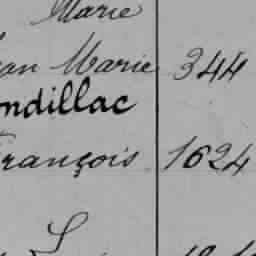 Marie
ean Marie 344
ndillac
rançois 1624
L